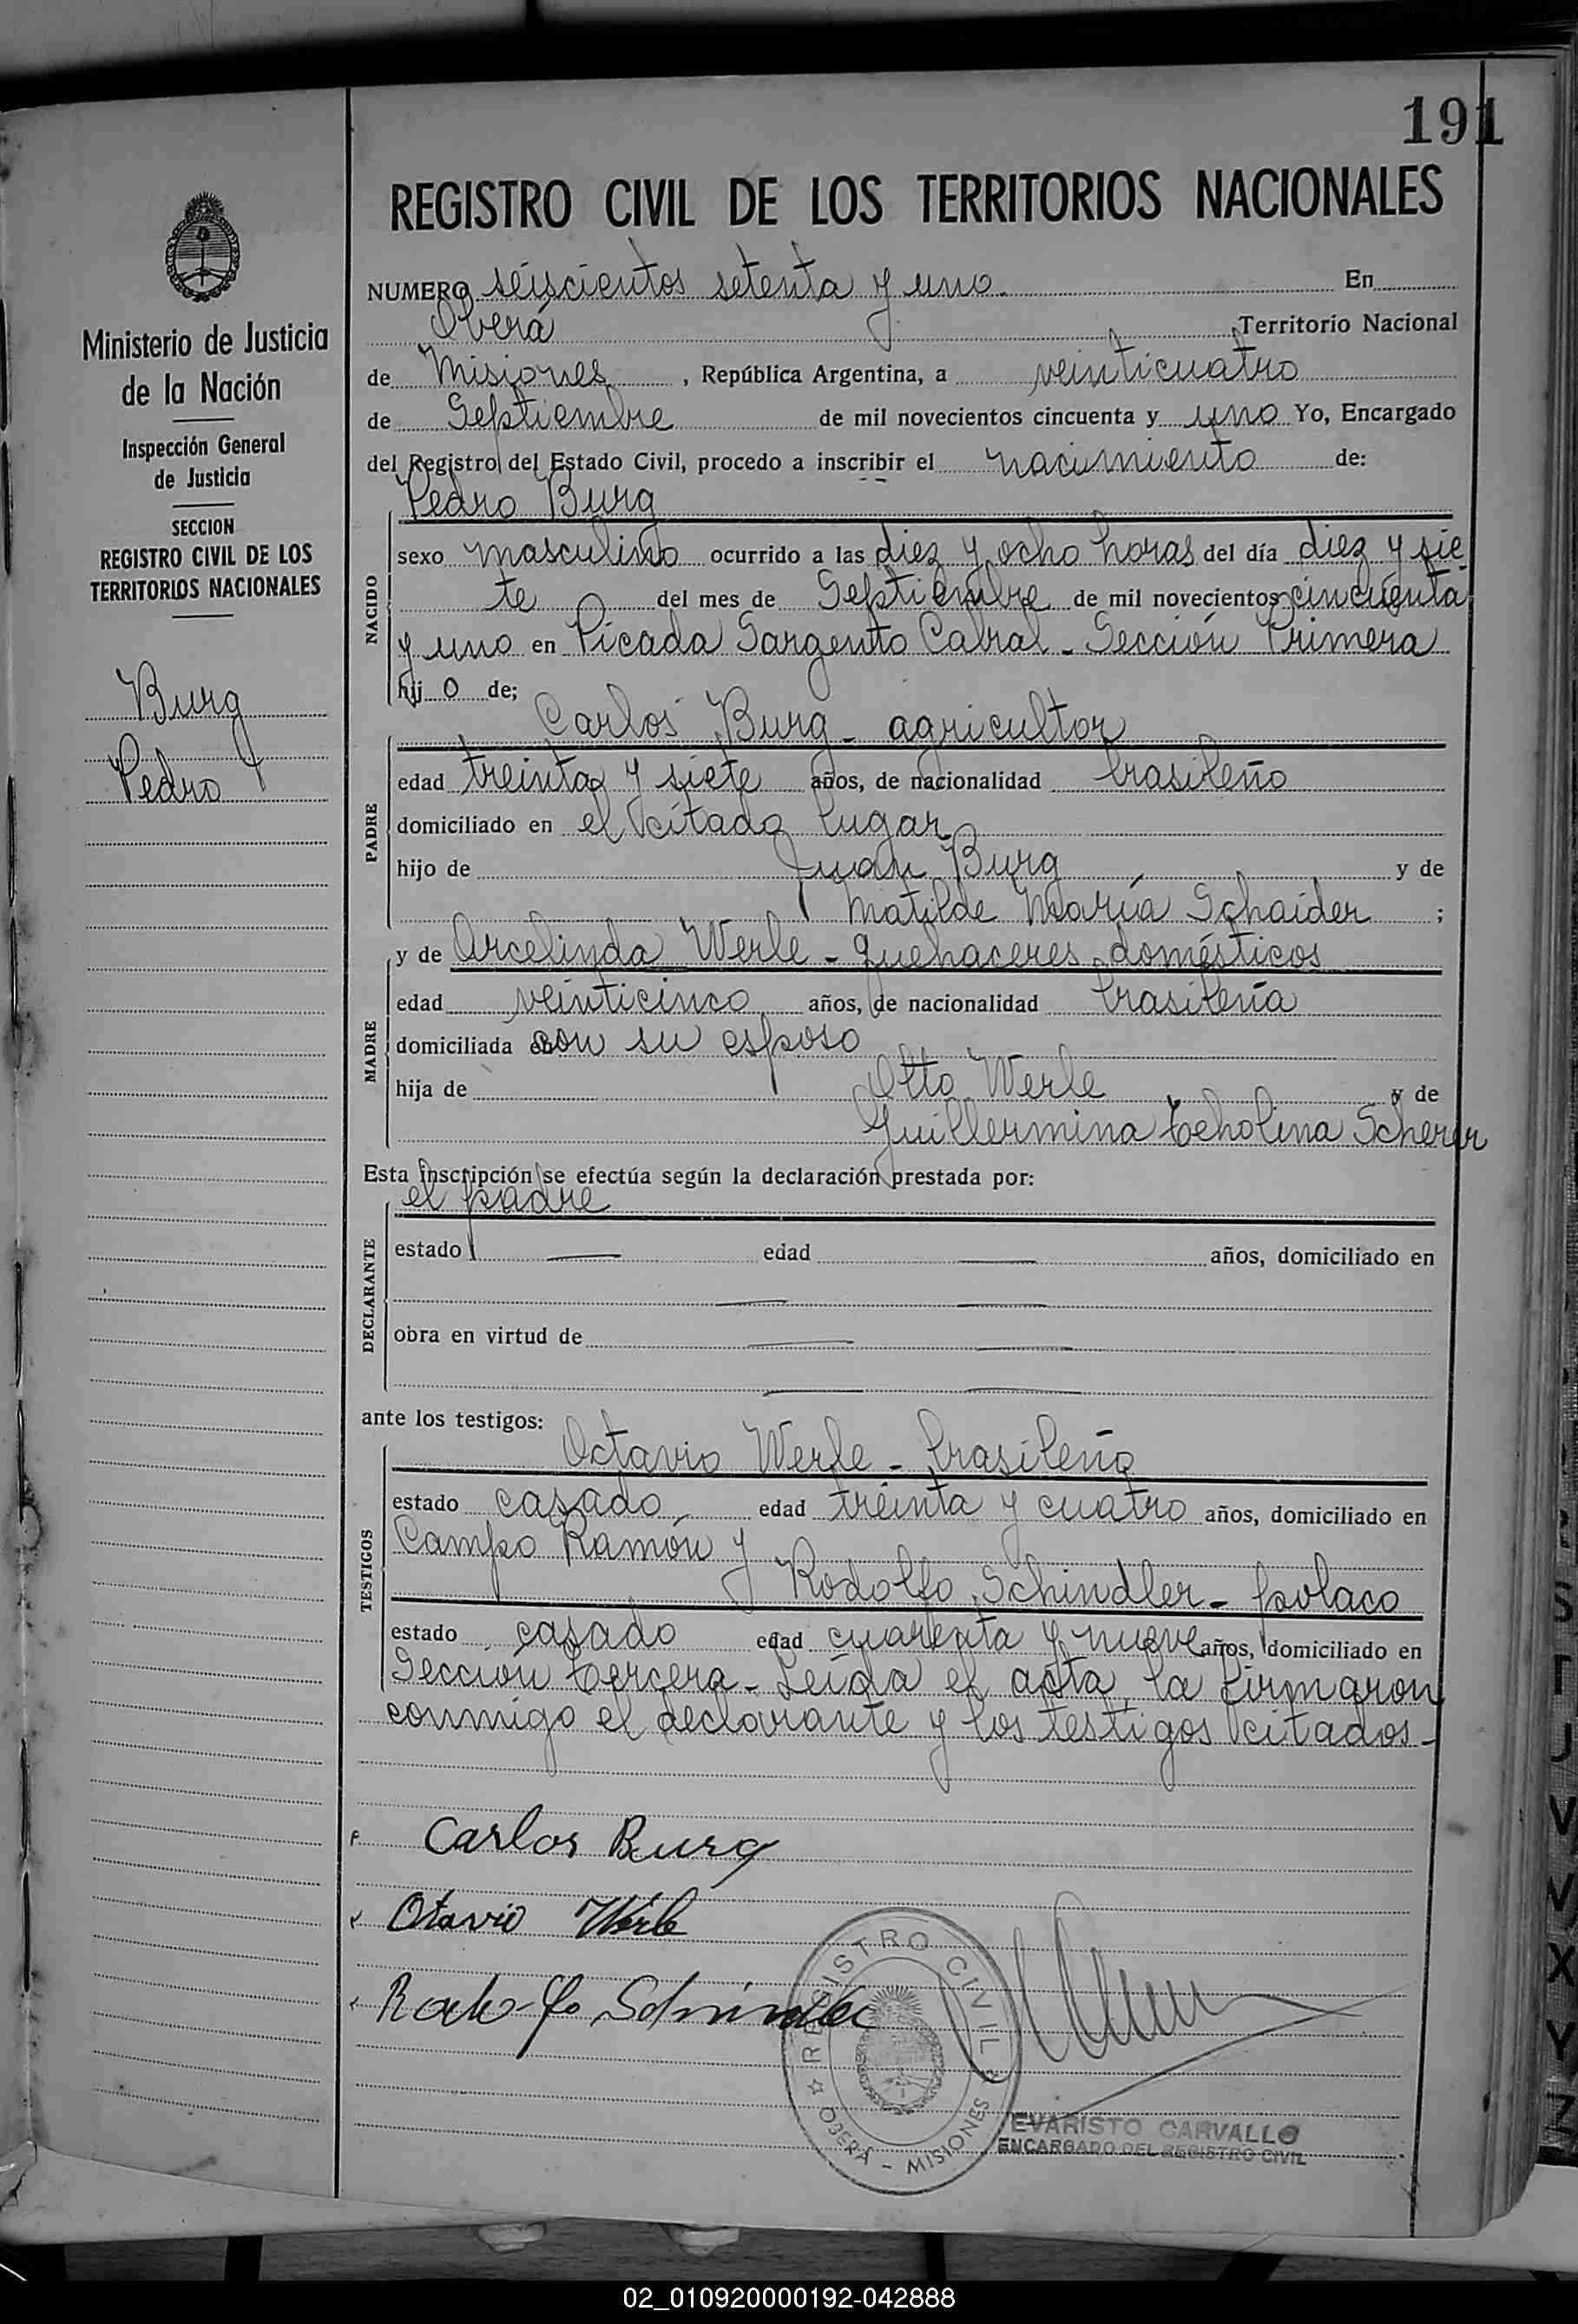 191
REGISTRO CIVIL DE LOS TERRITORIOS NACIONALES
Ministerio de Justicia
de la Nación
Inspección General
de Justicia
SECCION
REGISTRO CIVIL DE LOS
TERRITORIOS NACIONALES
Burg
Pedro
NUMERO seiscientos setenta y uno. En
Oberá Territorio Nacional
de Misiones, República Argentina, a veinticuatro
de Septiembre de mil novecientos cincuenta y uno Yo, Encargado
del Registro del Estado Civil, procedo a inscribir el nacimiento de:
Pedro Burg
NACIDO
sexo masculino ocurrido a las diez y ocho horas del día diez y sie
te del mes de Septiembre de mil novecientos cincuenta
y uno en Picada Sargento Cabral - Sección Primera
hijo de;
Carlos Burg - agricultor
PADRE
edad treinta y siete años, de nacionalidad brasileño
domiciliado en el citado lugar
hijo de Juan Burg y de
Matilde María Schaider ;
y de Arcelinda Werle - quehaceres domésticos
MADRE
edad veinticinco años, de nacionalidad brasileña
domiciliada con su esposo
hija de Otto Werle y de
Guillermina Tcholina Scherer
Esta inscripción se efectúa según la declaración prestada por:
el padre
DECLARANTE
estado — edad — años, domiciliado en
— —
obra en virtud de — —
— —
ante los testigos:
Octavio Werle - brasileño
TESTIGOS
estado casado edad treinta y cuatro años, domiciliado en
Campo Ramón y
Rodolfo Schindler - polaco
estado casado edad cuarenta y nueve años, domiciliado en
Sección tercera - Leída el acta, la firmaron
conmigo el declarante y los testigos citados -
Carlos Burg
Otavio Werle
Rodolfo Schindler
REGISTRO CIVIL
OBERÁ - MISIONES
EVARISTO CARVALLO
ENCARGADO DEL REGISTRO CIVIL
02_010920000192-042888